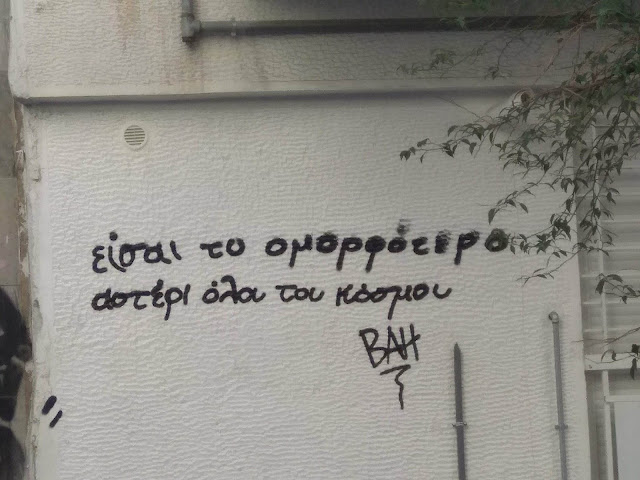 είσαι το ομορφότερο
αστέρι όλα του κόσμου
ΒΑΗ